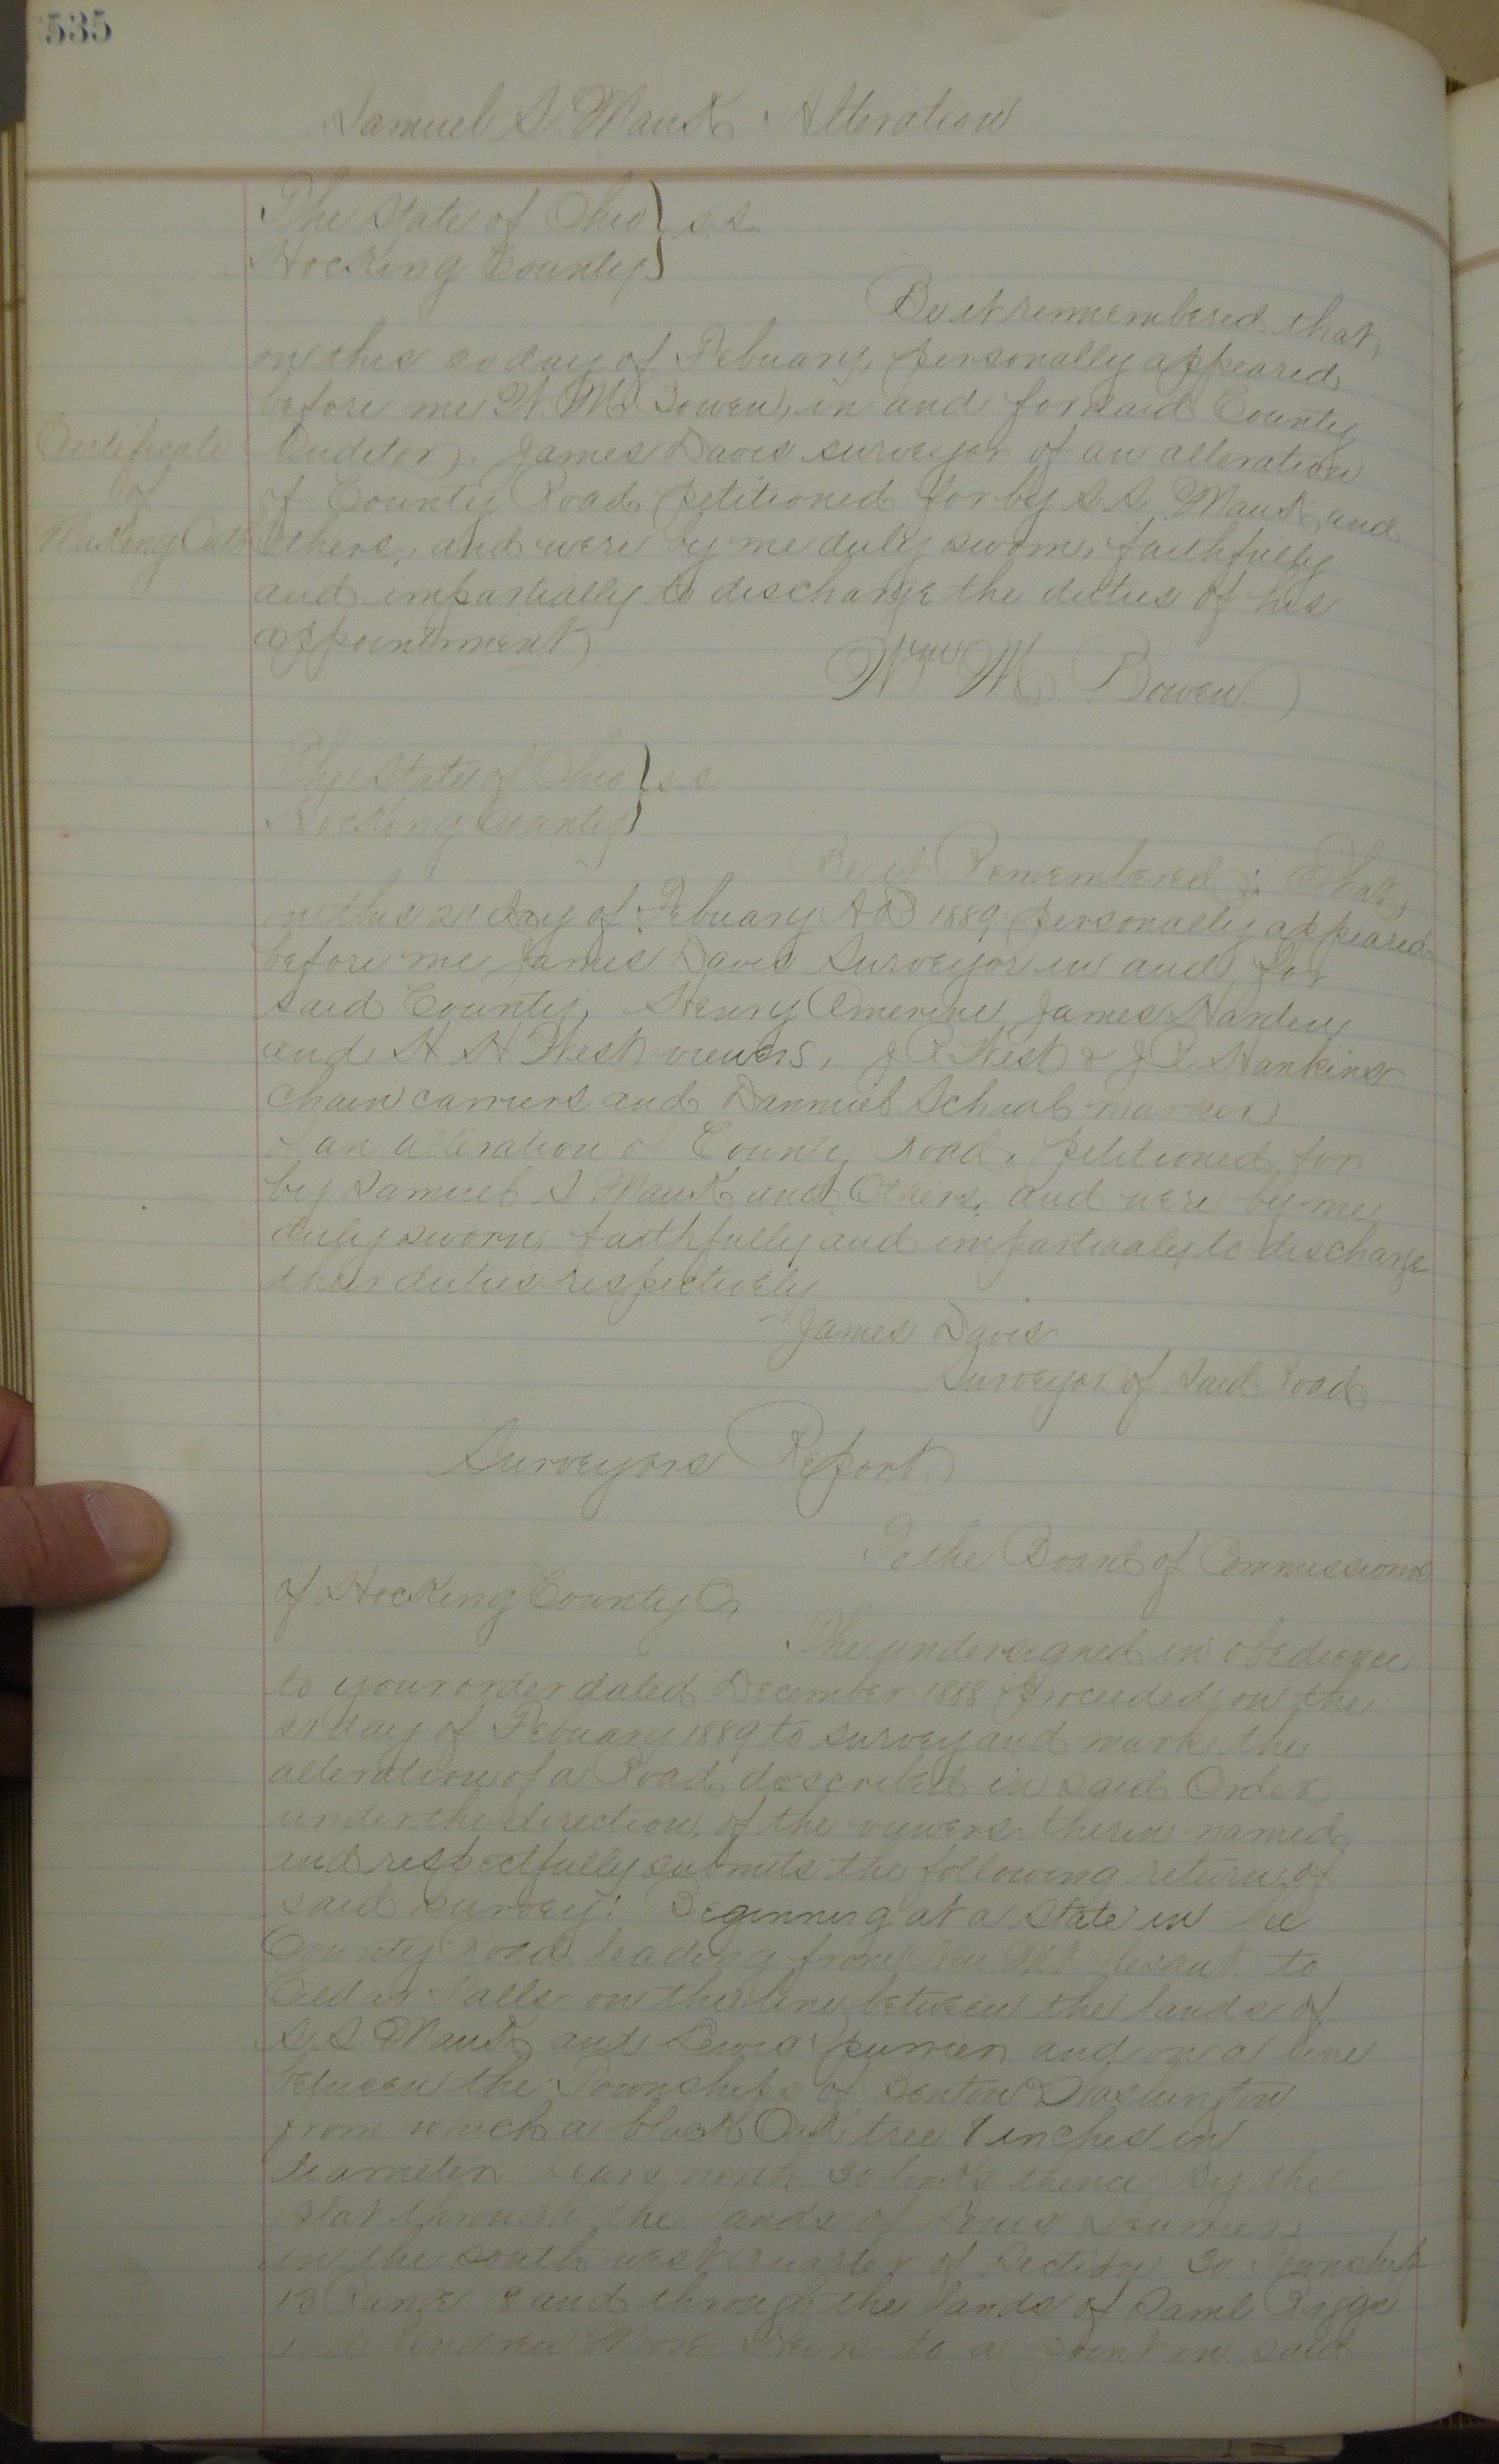 535
Samuel S. Mauk Alteration
The State of Ohio } s.s.
Hocking County }
Be it remembered that
on this 20 day of Febuary, personally appeared
before me W. M. Bowen, in and for said County
Auditor, James Davis surveyor of an alteration
of County Road petitioned for by S. S. Mauk and
Others, and were by me duly sworn, faithfully
and impartially to discharge the duties of his
appointment
Certificate
of
Making Oath
Wm M Bowen
The State of Ohio } s.s
Hocking County }
Be it Remembered; That,
on this 21 day of Febuary AD 1889 personally appeared
before me James Davis Surveyor in and for
said County, Henry Amerine James Harden
and H H West viewers, J P West & J R Hankins
Chain carriers and Danniel Schaal marker
of an alteration of County Road, petitioned for
by Samuel S Mauk and Others, and were by me
duly sworn, faithfully and impartiaaly to discharge
their duties respectively
James Davis
Surveyor of Said Road
Surveyors Report
To the Board of Commissioners
of Hocking County O,
The undersigned in obedience
to your order dated December 1888 proceeded on the
21 day of Febuary 1889 to survey and mark the
alteration of a Road described in said Order
under the direction, of the viewers therin named
and respectfully submits the following return of
said survey: Beginning at a State in the
County Road leading from New Mt Plesant to
Cedar Falls on the line between the lands of
S. S. Mauk and Lewis Spurrier and on a line
between the Townships of Benton & Washington
from which a black Oak tree 8 inches in
diameter bears north 30 links thence By the
plat through the lands of Lewis Spurrier
in the south west quarter of Section 30 Township
13 Range 18 and through the lands of Saml Riggs
and Andrew Moore Heirs to a point in said